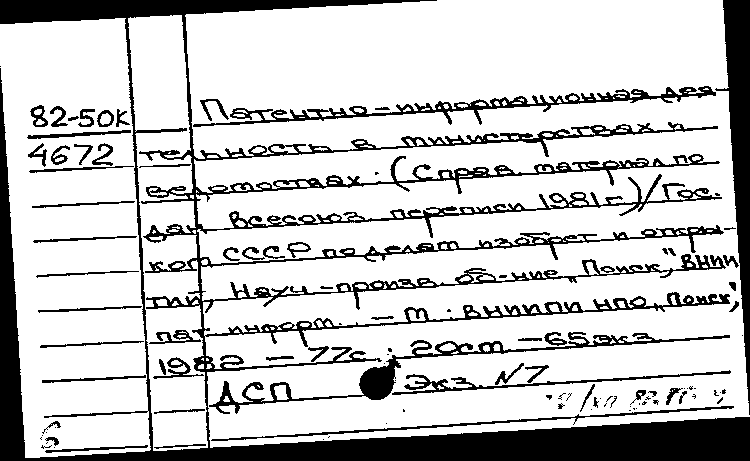 82-50К Патентно-информационная дея-
4672 тельность в министерствах и
ведомствах : (Справ. материал по
дан. всесоюз. переписи 1981 г.) / Гос.
ком. СССР по делам изобрет. и откры-
тий, Науч-произв. об-ние „Поиск", ВНИИ
пат. информ. . – М : ВНИИПИ НПО „Поиск",
1982 – 77с ; 20см – 65 экз.
ДСП Экз. N 7.
6